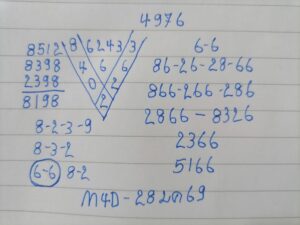 4976
8512 8 6 2 4 3 3
8398 4 6 6
2398 0 2
8198 2
8-2-3-9
8-3-2
6-6 8-2
6-6
86-26-28-66
866-266-286
2866-8326
2366
5166